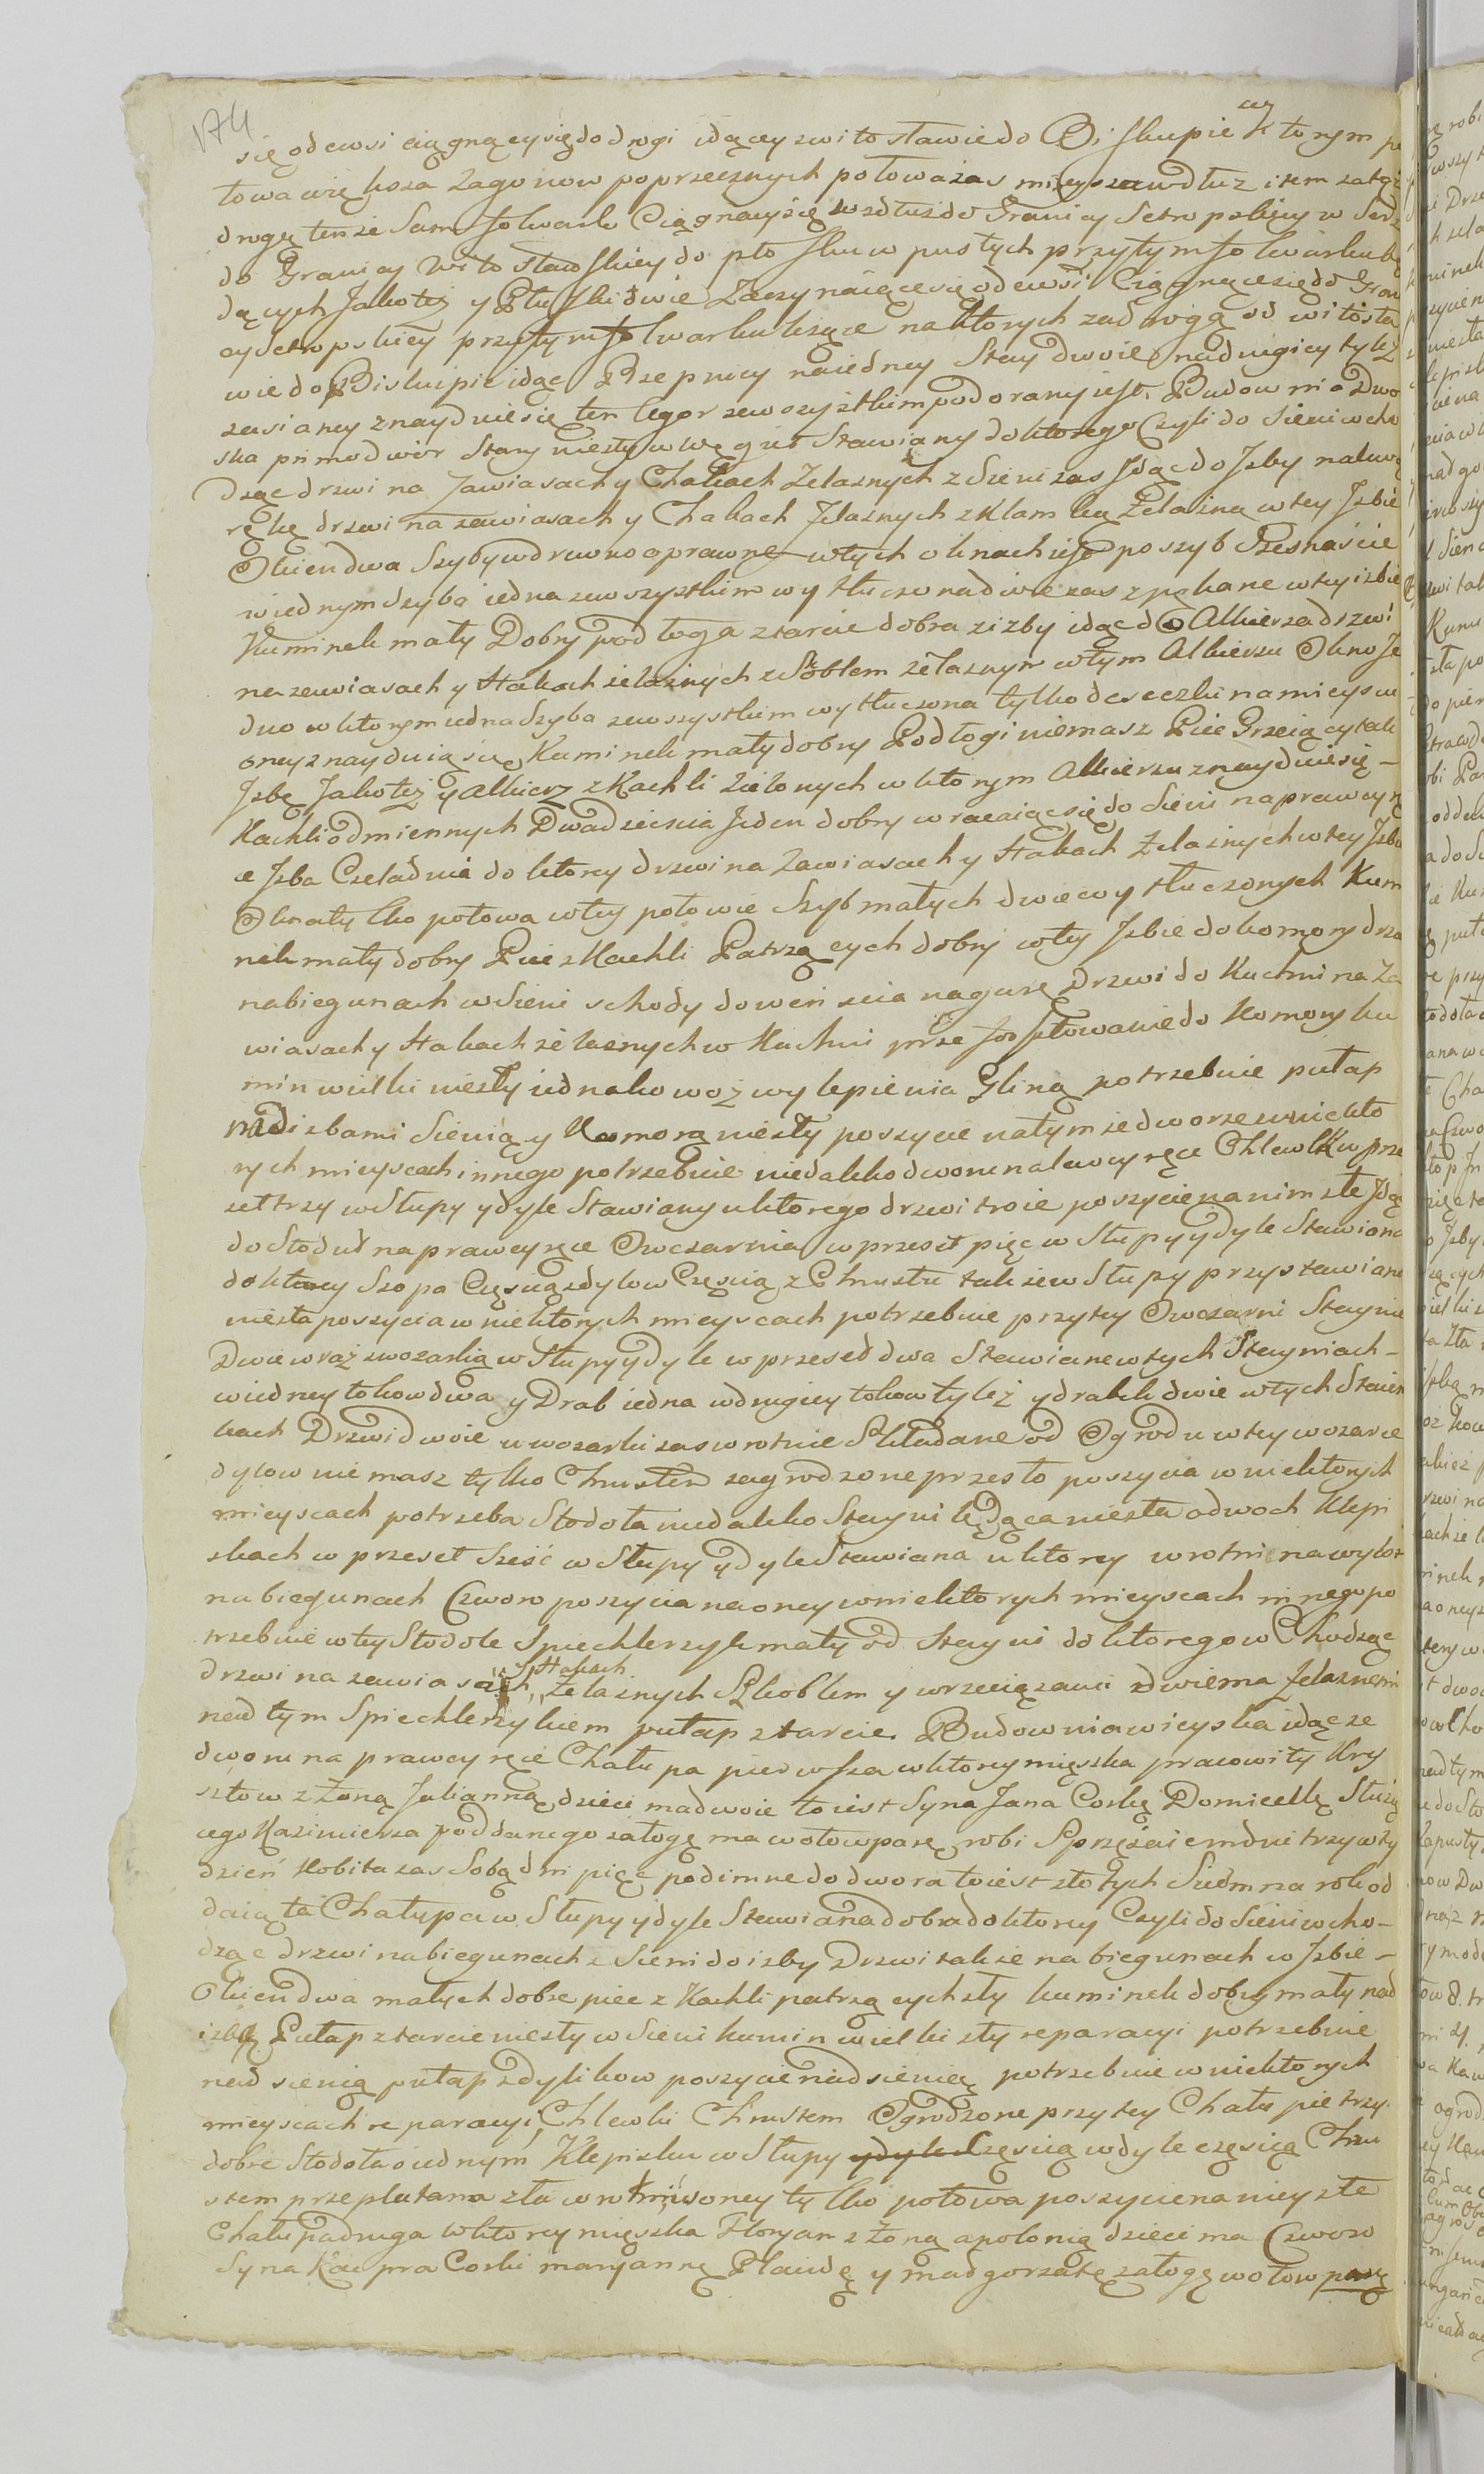 174
się od wsi ciągnący się do drogi idącey z witosławic do Biskupic w ktorym po
towa większa Zagonow poprzecznych połowa zas mnieysza wdłuz i tem za tęż
drogę tenze Sam folwark Ciągnący się wzdłuz do Granicy Setropskiey w
do Granicy Witosławskiey do płoskuw pustych przy tym folwarku bę
dących Jakotez y Płuszki dwie Zaczynaiące się od ewsi Ciągnące się do Gran
cy Setropskiey przy tym folwarku lezące na ktorych za drogą od witosła
wic do Biskupic idąc Pszenicy na iedney Stay dwoie na drugiey tylez
zasianey znayduie się ten Ugor ze wszystkim podorany iest. Budownia Dwo
ska primo dwór Stary niezły w węgieł Stawiany do ktorego Czyli do Sieni wcho
dząc drzwi na Zawiasach y Chakach Zelaznych z Sieni zas Idąc do Izby na lewą
rękę drzwi na zawiasach y Chakach Zelaznych z Klamką Zelazną w tey Izbie
Okien dwa Szyby w drewno oprawne w tych oknach iest po szyb Szesnaście
w iednym szyba iedna ze wszystkim wytłuczona dwie zas zpękane w tey izbie
Kuminek mały Dobry podłoga ztarcic dobra z izby idąc do Alkierza drzwi
na zawiasach y Hakach zelaznych z Skoblem zelaznym w tym Alkierzu Okno Je
dno w ktorym iedna Szyba ze wszystkim wytłuczona tylko deseczki na mieyscu
oney znayduią się Kuminek mały dobry Podłogi niemasz Piec Grzeiący tak
Izbę Jakotez y alkierz z Kachli Zielonych w ktorym Alkierzu znayduie się –
Kachli odmiennych Dwadziescia Jeden dobry wracaiąc się do Sieni na prawey rę
ce Izba Czeladnia do ktorey drzwi na Zawiasach y Hakach Zelaznych w tey Izbie
Okna tylko połowa w tey połowie Szyb małych dwie wytłuczonych Kum
nek mały dobry Piec z Kachli Patrzących dobry w tey Izbie do komory drzw
na biegunach w Sieni schody do weń scia na gurę Drzwi do Kuchni na Za
wiasach y Hakach zelaznych w Kuchni prze fosztowanie do Komory ku
min wielki niezły iednakowoz wylepienia Gliną potrzebuie pułap
nad izbami Sienią y Komorą niezły poszycie na tym ze dworze w niekto
rych mieyscach innego potrzebuie niedaleko dworu na lewey ręce Chlewik w prze
set trzy w Słupy y dyle Stawiany u ktorego drzwi troie poszycie na nim złe Idąc
do Stoduł na prawey ręce Owczarnia w przeset pięc w Słupy y dyle Stawiona
do ktorey Szopa Częscią z dylow Częscią z Chrustu takze w Słupy przystawiana
niezła poszycia w niektorych mieyscach potrzebuie przy tey Owczarni Staynie
Dwie wraz z wozarką w Słupy y dyle w przesed dwa Stawiane w tych Stayniach –
w iedney tokow dwa y Drab iedna w drugiey tokow tylez y drabek dwie w tych Stain
kach Drzwi dwoie u wozarki zas wrotnie Składane od Ogrodu w tey wozarce
dylow nie masz tylko Chrustem zagrodzone przesto poszycia w niektorych
mieyscach potrzeba Stodoła niedaleko Stayni będąca niezła o dwoch Klepi
skach w przeset Sześć w Słupy y dyle Stawiana u ktorey wrotni na wylot
na biegunach Czworo poszycia na oney w niektorych mieyscach innego po
trzebuie w tey Stodole Spiecklerzyk mały od Stayni do ktorego w Chodząc
drzwi na zawiasach y Hakach Zelaznych Skoblem y wrzeciązami z dwiema Zelaznemi
nad tym Spiecklerzykiem pułap ztarcic. Budownia wieyska idąc ze
dworu na prawey ręce Chałupa pierwsza w ktorey mięszka pracowity Krys
sztow z Zoną Julianną dzieci ma dwoie to iest Syna Jana Corkę Domicellę Służą
cego Kazimierza poddanego załogę ma wołow parę robi Sprzęzaiem dni trzy w ty
dzień Kobita zas Sobą dni pięc podimne do dwora to iest złotych Siedm na rok od
daią ta Chałupa w Słupy y dyle Stawiana dobra do ktorey Czyli do Sieni wcho–
dząc drzwi na biegunach z Sieni do izby Drzwi takze na biegunach w Izbie –
Okien dwa małych dobre piec z Kachli patrzących zły kuminek dobry mały nad
izbą Pułap ztarcic niezły w Sieni kumin wielki zły reparacyi potrzebuie
nad sienią pułap z dylikow poszycie nad sienią potrzebuie w niektorych
mieyscach reparacyi, Chlewki Chrustem Ogrodzone przy tey Chałupie trzy
dobre Stodoła o iednym Klepisku w Słupy y dyle Częscią w dyle częscią Chru
stem przeplatana zła wrotni u oney tylko połowa poszycie na niey złe
Chałupa druga w ktorey mięszka Floryan z Zoną apolonią dzieci ma Czworo
Syna Kacpra Corki maryannę Klaudę y madgorzatę załogę wołow parę